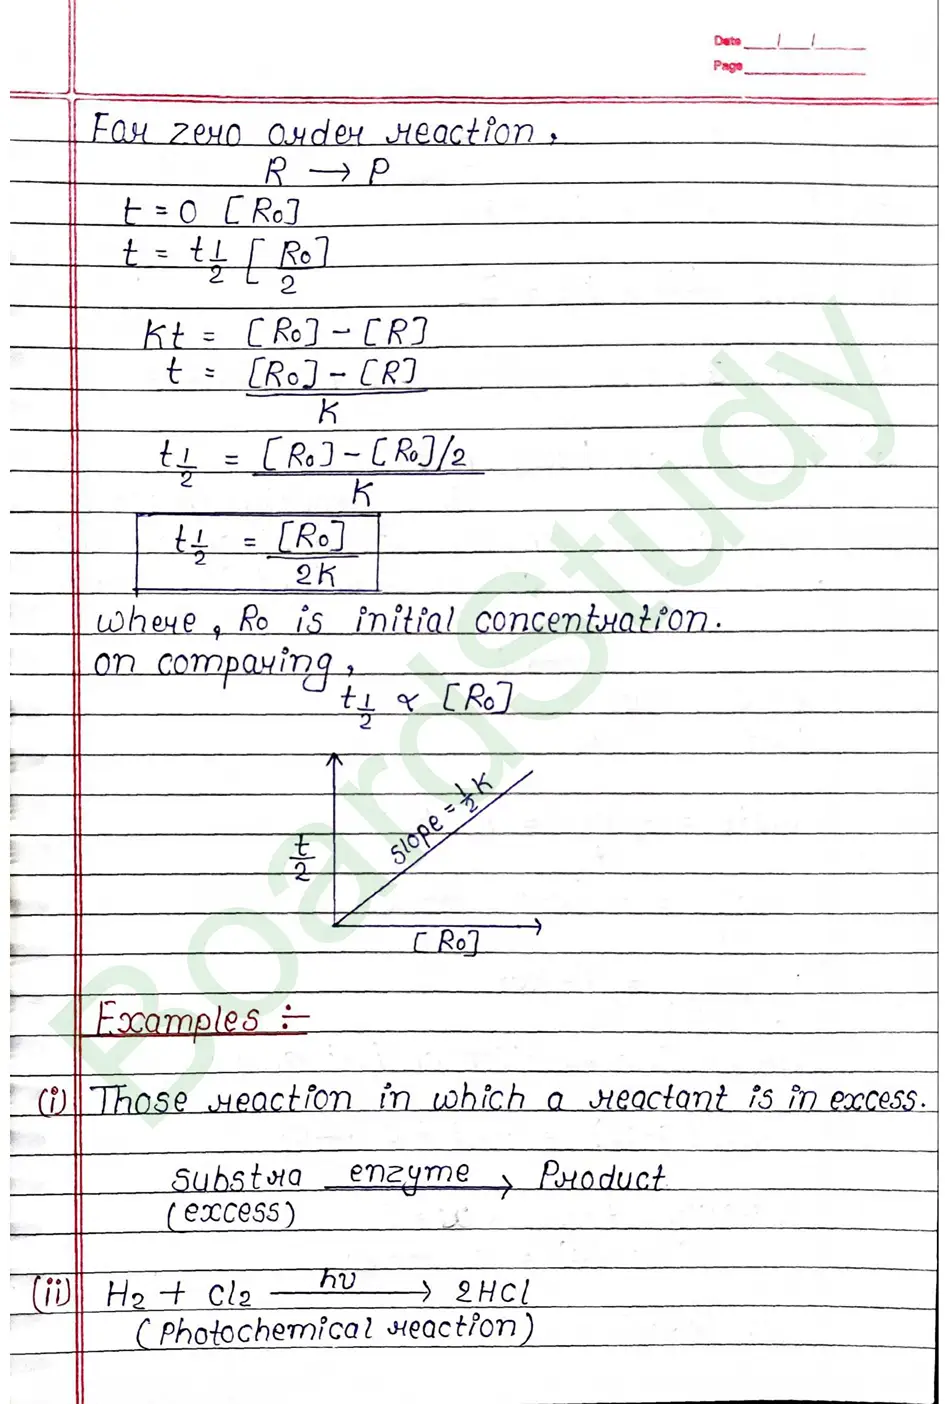 Date __/__/____
Page __________
For zero order reaction,
R → P
t = 0 [R₀]
t = t1/2 [R₀/2]
Kt = [R₀] - [R]
t = [R₀] - [R] / K
t1/2 = [R₀] - [R₀]/2 / K
t1/2 = [R₀] / 2K
where, R₀ is initial concentration.
on comparing,
t1/2 ∝ [R₀]
slope = 1/2 K
t/2
[R₀]
Examples :-
(i) Those reaction in which a reactant is in excess.
substra enzyme → Product
(excess)
(ii) H₂ + Cl₂ hν → 2HCl
(Photochemical reaction)
BoardStudy